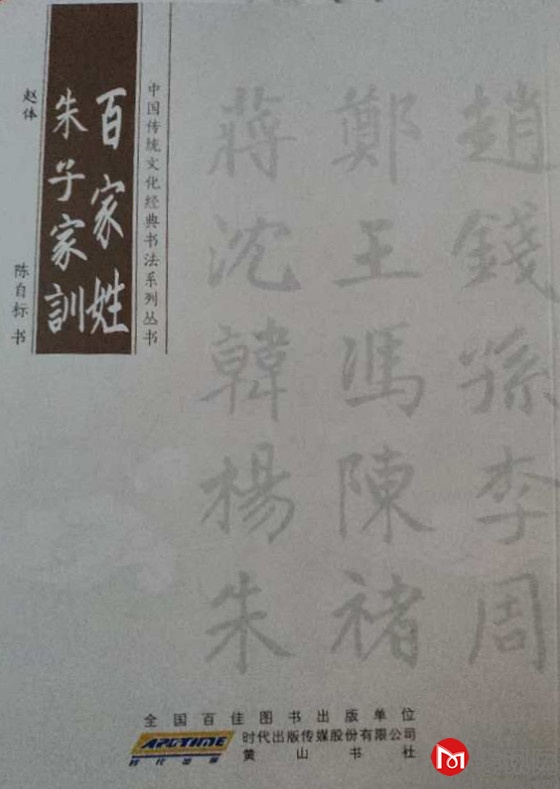 中国传统文化经典书法系列丛书
百家姓
朱子家訓
赵体
陈自标 书
趙錢孫李周
鄭王馮陳褚
蔣沈韓楊朱
全国百佳图书出版单位
ARCTIME
时代出版
时代出版传媒股份有限公司
黄山书社